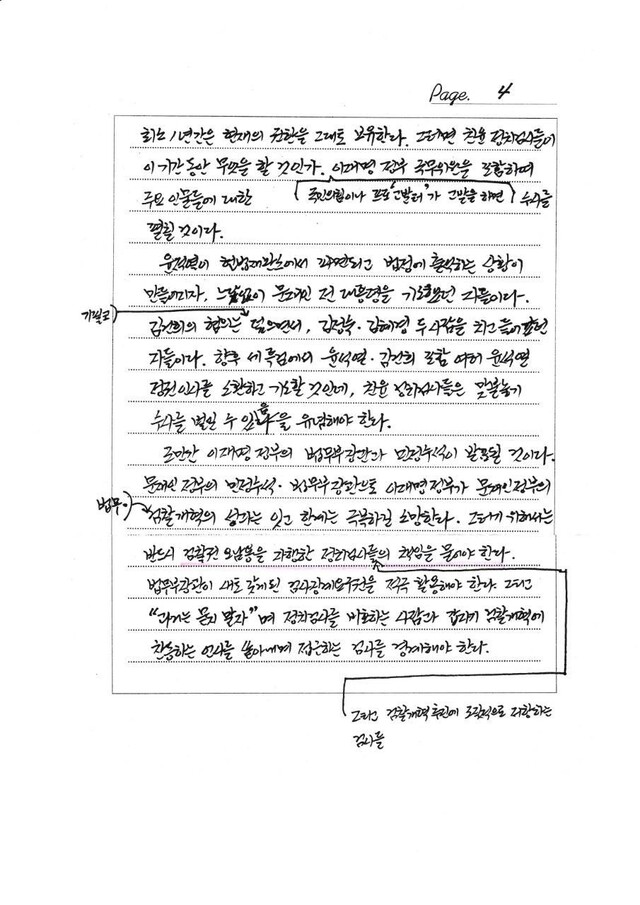 Page. 4
최소 1년간은 현재의 권한을 그대로 보유한다. 그러면 친윤 정치검사들이
이 기간동안 무엇을 할 것인가. 이재명 정부 국무위원을 포함하여
주요 인물들에 대한 (국민의힘이나 프로'고발러'가 고발을 하면) 수사를
펼칠 것이다.
윤석열이 헌법재판소에서 파면되고 법정에 출석하는 상황이
만들어지자, 느닷없이 문재인 전 대통령을 기소했던 자들이다.
김건희의 혐의는 덮으면서, 김정숙·김혜경 두 사람을 치고 들어갔던
기필코
자들이다. 향후 세 특검에서 윤석열·김건희 포함 여러 윤석열
정권 인사를 소환하고 기소할 것인데, 친윤 정치검사들은 맞불놓기
수사를 벌일 수 있음을 유념해야 한다.
조만간 이재명 정부의 법무부장관과 민정수석이 발표될 것이다.
문재인 정부의 민정수석·법무부장관으로 이재명 정부가 문재인 정부의
법무·
검찰개혁의 성과는 잇고 한계는 극복하길 소망한다. 그러기 위해서는
반드시 검찰권 오남용을 자행한 정치검사들의 책임을 물어야 한다.
법무부장관이 새로 갖게 된 검사징계청구권을 적극 활용해야 한다. 그리고
"과거는 묻지 말자"며 정치검사를 비호하는 사람과 갑자기 검찰개혁에
찬동하는 인사를 쏟아내며 접근하는 검사를 경계해야 한다.
그리고 검찰개혁 추진에 조직적으로 저항하는
검사들